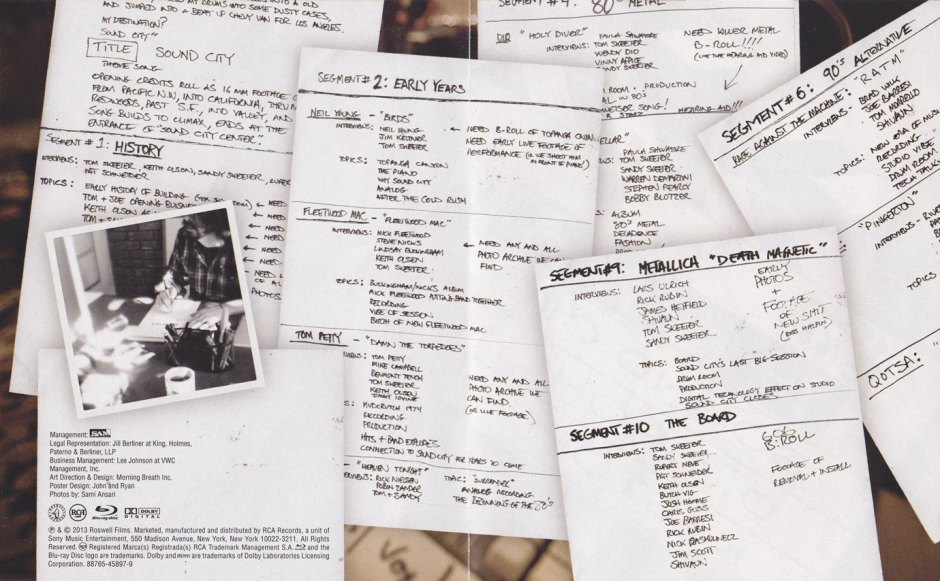 AND JUMPED INTO A BEAT UP CHEVY VAN FOR LOS ANGELES.
MY DESTINATION?
SOUND CITY"
TITLE SOUND CITY
THEME SONG
OPENING CREDITS ROLL AS 16 MM FOOTAGE
FROM PACIFIC N.W, INTO CALIFORNIA, THRU
REDWOODS, PAST S.F., INTO VALLEY, AND
SONG BUILDS TO CLIMAX, ENDS AT THE
ENTRANCE OF "SOUND CITY CENTER."
SEGMENT #1: HISTORY
TOM SKEETER, KEITH OLSON, SANDY SKEETER,
PAT SCHNEIDER
TOPICS: EARLY HISTORY OF BUILDING
TOM + JOE OPENING
KEITH OLSON
← NEED
← NEED
← NEED
← NEED
PHOTOS
SEGMENT #2: EARLY YEARS
NEIL YOUNG - "BIRDS"
INTERVIEWS: NEIL YOUNG
JIM KELTNER
TOM SKEETER
← NEED B-ROLL OF TOPANGA
NEED EARLY LIVE FOOTAGE OF
PERFORMANCE (OR WE SHOOT HIM
IN FRONT OF PIANO!)
TOPICS: TOPANGA CANYON
THE PIANO
WHY SOUND CITY
ANALOG
AFTER THE GOLD RUSH
FLEETWOOD MAC - "FLEETWOOD MAC"
INTERVIEWS: MICK FLEETWOOD
STEVIE NICKS
LINDSAY BUCKINGHAM
KEITH OLSEN
TOM SKEETER
← NEED ANY AND ALL
PHOTO ARCHIVE WE CAN
FIND
TOPICS: BUCKINGHAM/NICKS ALBUM
MICK FLEETWOOD PUTTING BAND TOGETHER
RECORDING
VIBE OF SESSION
BIRTH OF NEW FLEETWOOD MAC
TOM PETTY - "DAMN THE TORPEDOES"
TOM PETTY
MIKE CAMPBELL
BENMONT TENCH
TOM SKEETER
KEITH OLSEN
JIMMY IOVINE
NEED ANY AND ALL
PHOTO ARCHIVE WE
CAN FIND
(OR LIVE FOOTAGE)
MUDCRUTCH 1974
RECORDING
PRODUCTION
HITS + BAND EXPLODES
CONNECTION TO SOUND CITY FOR YEARS TO COME
"HEAVEN TONIGHT"
RICK NIELSEN
ROBIN ZANDER
TOM + SANDY
TOPIC: "SURRENDER"
ANALOG RECORDING
THE BEGINNING OF THE 80'S
SEGMENT #4: 80'S METAL
DIO "HOLY DIVER"
INTERVIEWS: PAULA SALVATORE
TOM SKEETER
WENDY DIO
VINNY APPICE
SANDY SKEETER
NEED KILLER METAL
B-ROLL!!!!
(LIKE THE HEARING AID VIDEO)
ROOM, PRODUCTION
IN 80'S
SONG! HEARING AID!!!
PAULA SALVATORE
TOM SKEETER
SANDY SKEETER
WARREN DEMARTINI
STEPHEN PEARCY
BOBBY BLOTZER
ALBUM
80'S METAL
DECADENCE
FASHION
SEGMENT #6: 90'S ALTERNATIVE
RAGE AGAINST THE MACHINE: "R.A.T.M"
INTERVIEWS - BRAD WILK
JOE BARRESI
TOM MORELLO
SHIVAUN
TOPICS: NEW ERA OF
RECORDING
STUDIO VIBE
DRUM ROOM
TECH TALK
"PINKERTON"
INTERVIEWS -
TOPICS
QOTSA:
SEGMENT #9: METALLICA "DEATH MAGNETIC"
INTERVIEWS: LARS ULRICH
RICK RUBIN
JAMES HETFIELD
SHIVAUN
TOM SKEETER
SANDY SKEETER
EARLY
PHOTOS
+
FOOTAGE
OF
NEW SHIT
(ROSS HALFIN)
TOPICS: BOARD
SOUND CITY'S LAST BIG SESSION
DRUM ROOM
PRODUCTION
DIGITAL TECHNOLOGY EFFECT ON STUDIO
SOUND CITY CLOSES
SEGMENT #10 THE BOARD
INTERVIEWS: TOM SKEETER
SANDY SKEETER
RUPERT NEVE
PAT SCHNEIDER
KEITH OLSEN
BUTCH VIG
JOSH HOMME
CHRIS GOSS
JOE BARRESI
RICK RUBIN
NICK RASKULINECZ
JIM SCOTT
SHIVAUN
606
B-ROLL
FOOTAGE OF
REMOVAL + INSTALL
Management: SAM
Legal Representation: Jill Berliner at King, Holmes,
Paterno & Berliner, LLP
Business Management: Lee Johnson at VWC
Management, Inc.
Art Direction & Design: Morning Breath Inc.
Poster Design: John and Ryan
Photos by: Sami Ansari
RCA Blu-ray Disc DOLBY DIGITAL
℗ & © 2013 Roswell Films. Marketed, manufactured and distributed by RCA Records, a unit of
Sony Music Entertainment, 550 Madison Avenue, New York, New York 10022-3211. All Rights
Reserved. Registered Marca(s) Registrada(s) RCA Trademark Management S.A. and the
Blu-ray Disc logo are trademarks. Dolby and are trademarks of Dolby Laboratories Licensing
Corporation. 88765-45897-9